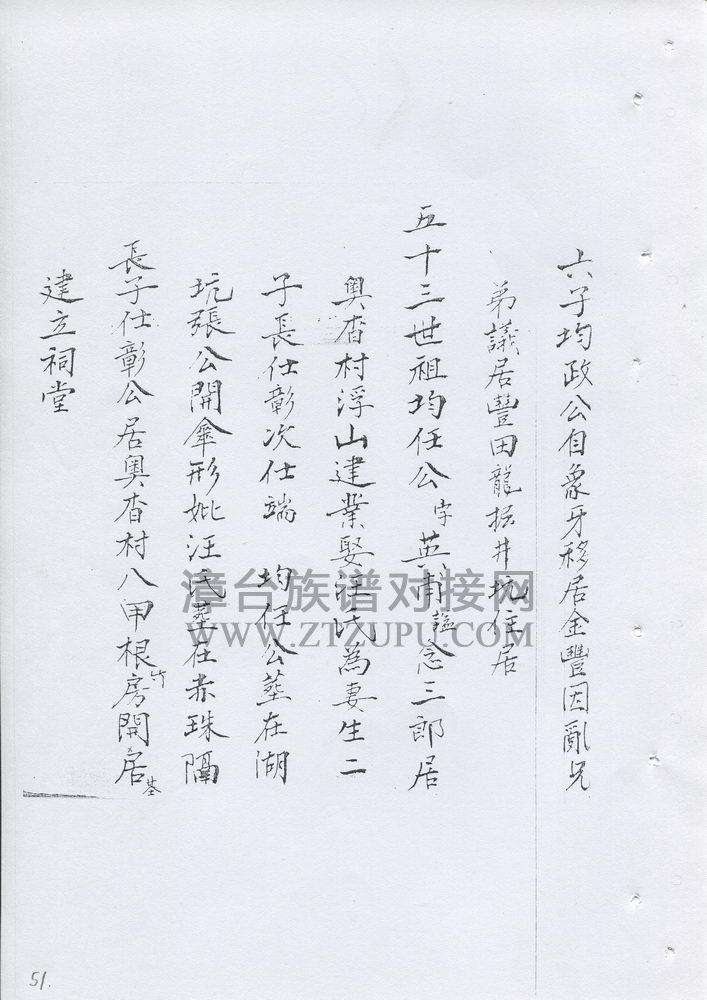 六子均政公自象牙移居金豐因亂兄
弟議居豐田龍掘井坑住居
五十三世祖均任公字英甫諡念三郎居
奧杳村浮山建業娶汪氏為妻生二
子長仕彰次仕端 均任公塟在湖
坑張公開傘形妣汪氏塟在赤珠隔
長子仕彰公居奧杳村八甲根竹房開居基
建立祠堂
漳台族谱对接网
WWW.ZTZUPU.COM
51.